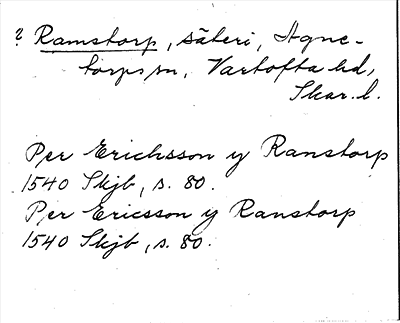 ? Ramstorp, säteri, Agne-
torps sn, Vartofta hd,
Skar. l.
Per Erichsson y Ranstorp
1540 Skjb, s. 80.
Per Ericsson y Ranstorp
1540 Skjb, s. 80.